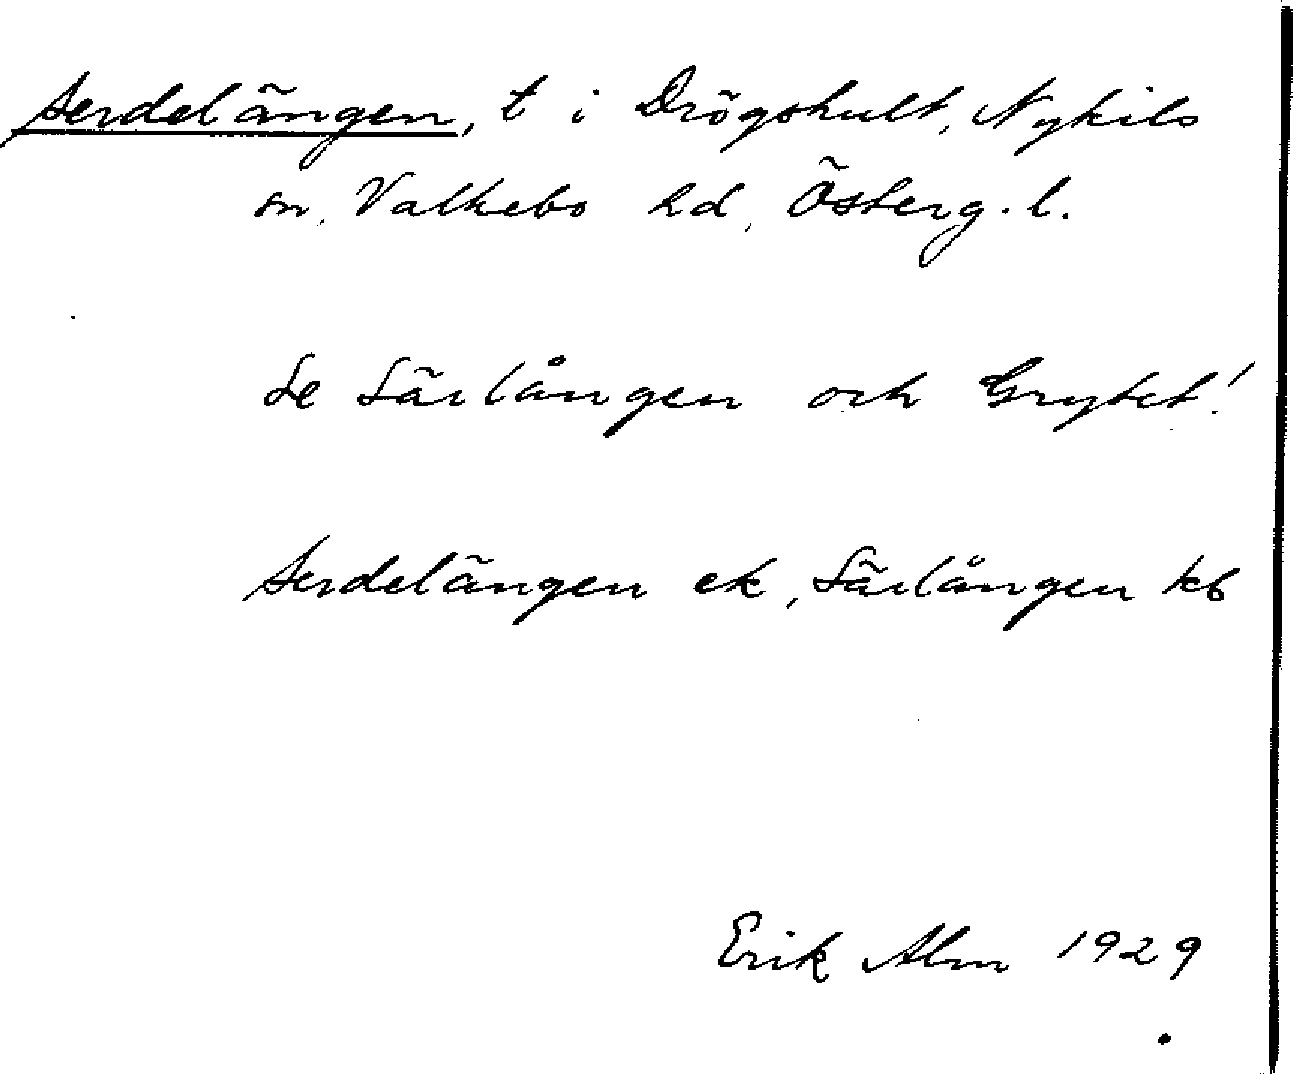 Serdelängen, t i Drögshult, Nykils
sn, Valkebo hd, Österg. l.
Se Särlången och Grytet!
Serdelängen ek, Särlången kb
Erik Alm 1929